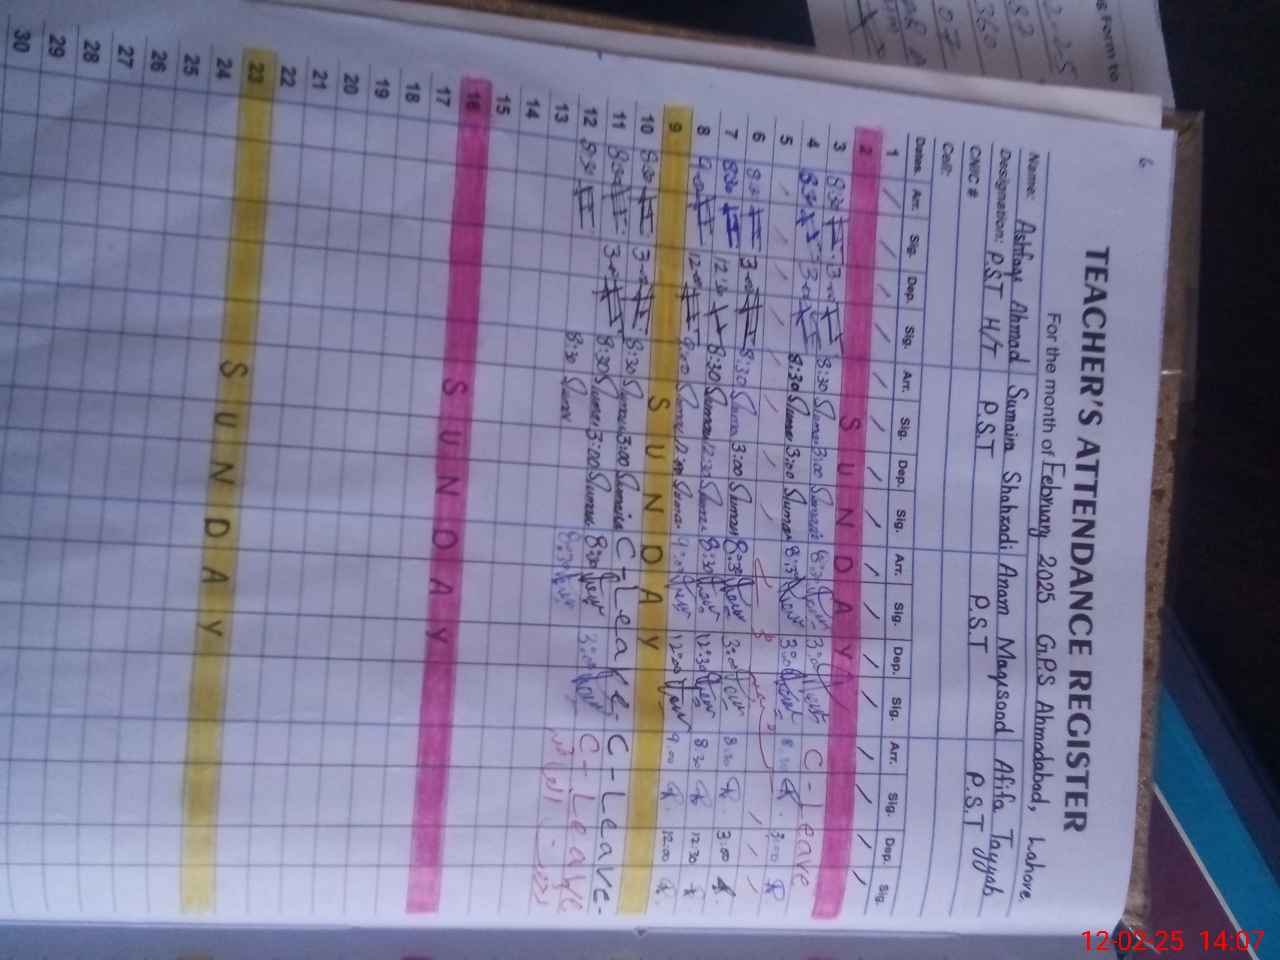 6
TEACHER'S ATTENDANCE REGISTER
For the month of February 2025 G.P.S Ahmadabad, Lahore
Name: Ashfaq Ahmad Sumaira Shahzadi Anam Maqsood Afifa Tayyab
Designation: P.S.T H/T P.S.T P.S.T P.S.T
CNIC #
Cell:
Dates Arr. Sig. Dep. Sig. Arr. Sig. Dep. Sig. Arr. Sig. Dep. Sig. Arr. Sig. Dep. Sig.
1
2 SUNDAY
3 8:30 3:00 8:30 Sumaira 3:00 Sumaira 8:30 3:00 C-Leave
4 8:30 3:00 8:30 Sumaira 3:00 Sumaira 8:30 3:00 8:30 3:00
5
6 8:30 3:00 8:30 Sumaira 3:00 Sumaira 8:30 3:00 8:30 3:00
7 8:30 12:30 8:30 Sumaira 12:30 Sumaira 8:30 12:30 8:30 12:30
8 9:00 12:00 9:00 Sumaira 12:00 Sumaira 9:00 12:00 9:00 12:00
9 SUNDAY
10 8:30 3:00 8:30 Sumaira 3:00 Sumaira C-Leave. C-Leave.
11 8:30 3:00 8:30 Sumaira 3:00 Sumaira 8:30 3:00 C-Leave
12 8:30 8:30 Sumaira 8:30
13
14
15
16 SUNDAY
17
18
19
20
21
22
23 SUNDAY
24
25
26
27
28
29
30
12-02-25 14:07